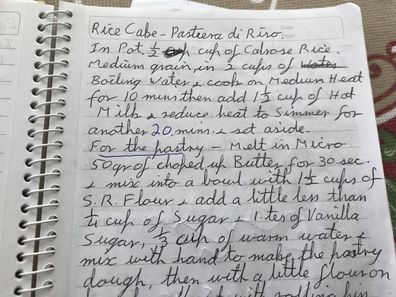 Rice Cake - Pastiera di Riso.
In Pot, ½ cup of Calrose Rice.
Medium grain, in 2 cups of
Boiling Water & cook on Medium Heat
for 10 mins then add 1½ cup of Hot
Milk & reduce heat to Simmer for
another 20 mins. & set aside.
For the pastry - Melt in Micro
50gr of choped up Butter for 30 sec.
& mix into a bowl with 1½ cups of
S. R. Flour & add a little less than
¼ cup of Sugar & 1 tes of Vanilla
Sugar, ⅓ cup of warm water &
mix with hand to make the pastry
dough, then with a little flour on
with rolling pin